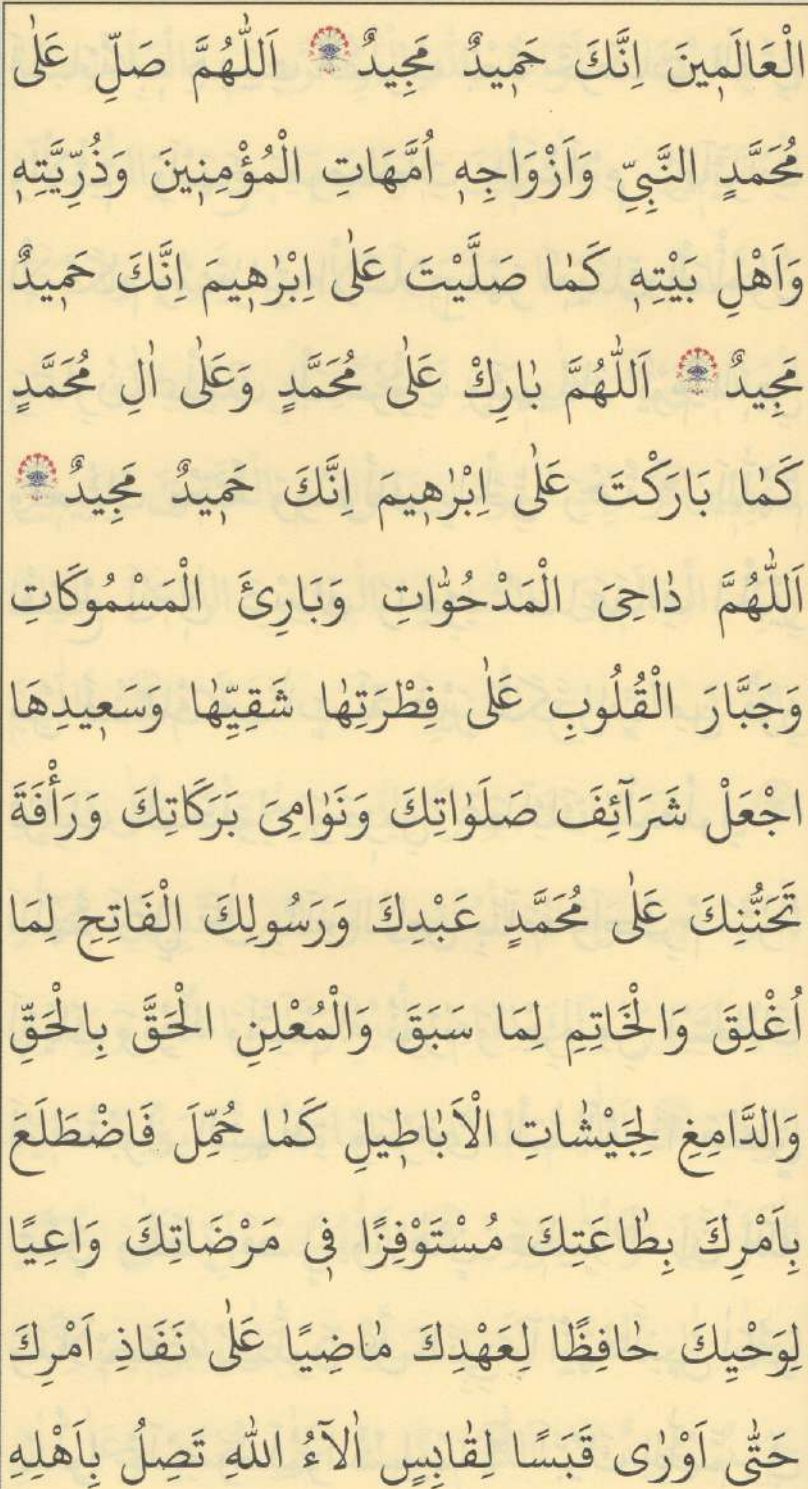 الْعَالَمٖينَ اِنَّكَ حَمٖيدٌ مَجٖيدٌ اَللّٰهُمَّ صَلِّ عَلٰى
مُحَمَّدٍ النَّبِيِّ وَاَزْوَاجِهٖ اُمَّهَاتِ الْمُؤْمِنٖينَ وَذُرِّيَّتِهٖ
وَاَهْلِ بَيْتِهٖ كَمٰا صَلَّيْتَ عَلٰى اِبْرٰهٖيمَ اِنَّكَ حَمٖيدٌ
مَجٖيدٌ اَللّٰهُمَّ بٰارِكْ عَلٰى مُحَمَّدٍ وَعَلٰى اٰلِ مُحَمَّدٍ
كَمٰا بَارَكْتَ عَلٰى اِبْرٰهٖيمَ اِنَّكَ حَمٖيدٌ مَجٖيدٌ
اَللّٰهُمَّ دٰاحِىَ الْمَدْحُوّٰاتِ وَبَارِئَ الْمَسْمُوكَاتِ
وَجَبَّارَ الْقُلُوبِ عَلٰى فِطْرَتِهٰا شَقِيِّهٰا وَسَعٖيدِهَا
اجْعَلْ شَرَآئِفَ صَلَوٰاتِكَ وَنَوٰامِىَ بَرَكَاتِكَ وَرَأْفَةَ
تَحَنُّنِكَ عَلٰى مُحَمَّدٍ عَبْدِكَ وَرَسُولِكَ الْفَاتِحِ لِمَا
اُغْلِقَ وَالْخَاتِمِ لِمَا سَبَقَ وَالْمُعْلِنِ الْحَقَّ بِالْحَقِّ
وَالدَّامِغِ لِجَيْشٰاتِ الْاَبٰاطٖيلِ كَمٰا حُمِّلَ فَاضْطَلَعَ
بِاَمْرِكَ بِطٰاعَتِكَ مُسْتَوْفِزًا فٖى مَرْضَاتِكَ وَاعِيًا
لِوَحْيِكَ حٰافِظًا لِعَهْدِكَ مٰاضِيًا عَلٰى نَفَاذِ اَمْرِكَ
حَتّٰى اَوْرٰى قَبَسًا لِقٰابِسٍ اٰلَآءُ اللّٰهِ تَصِلُ بِاَهْلِهِ